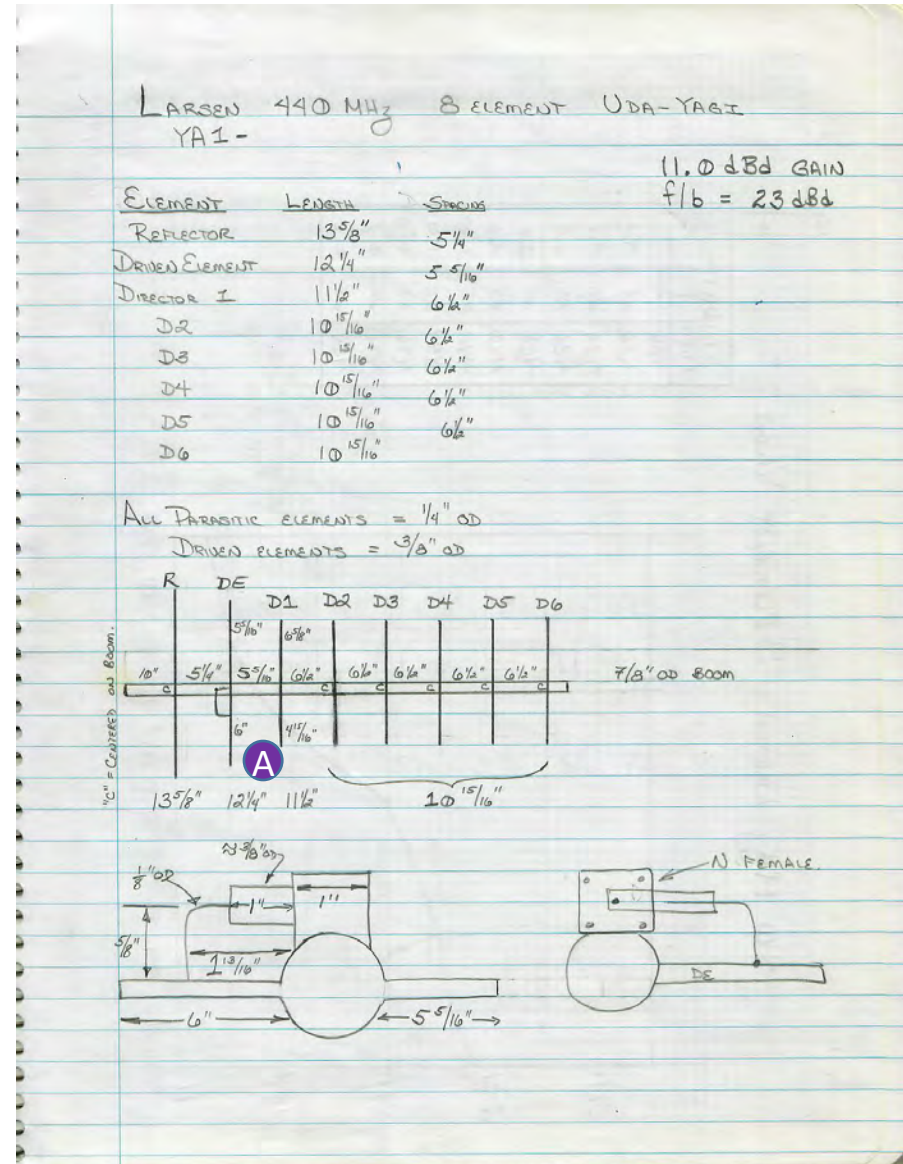 LARSEN 440 MHz 8 ELEMENT UDA-YAGI
YA1-
11.0 dBd GAIN
f/b = 23 dBd
ELEMENT LENGTH SPACING
REFLECTOR 13 5/8" 5 1/4"
DRIVEN ELEMENT 12 1/4" 5 5/16"
DIRECTOR I 11 1/2" 6 1/2"
D2 10 15/16" 6 1/2"
D3 10 15/16" 6 1/2"
D4 10 15/16" 6 1/2"
D5 10 15/16" 6 1/2"
D6 10 15/16"
ALL PARASITIC ELEMENTS = 1/4" OD
DRIVEN ELEMENTS = 3/8" OD
R DE
D1 D2 D3 D4 D5 D6
5 5/16" 6 5/8"
10" 5 1/4" 5 5/16" 6 1/2" 6 1/2" 6 1/2" 6 1/2" 6 1/2" 7/8" OD BOOM
C C C C C C
6" 4 15/16"
A
"C" = CENTERED ON BOOM.
13 5/8" 12 1/4" 11 1/2" 10 15/16"
≈ 3/8" OD
1/8" OD
N FEMALE.
1" 1"
5/8"
1 13/16"
DE
6" 5 5/16"